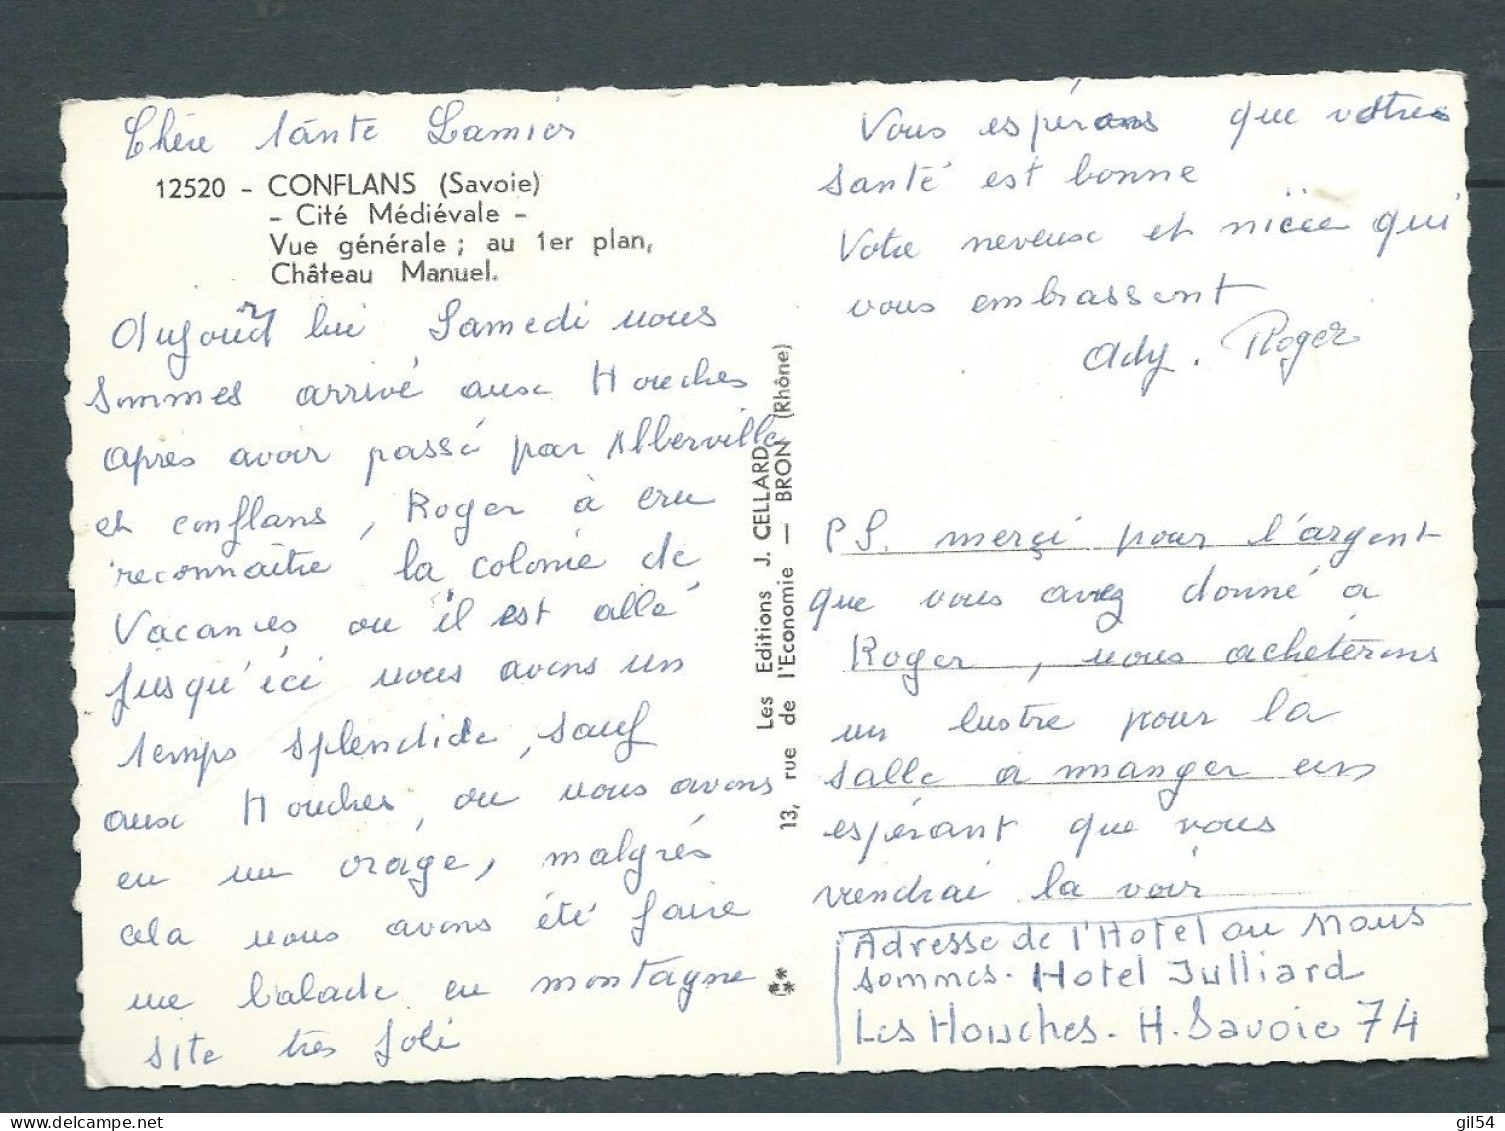 Chère tante Lamier
12520 - CONFLANS (Savoie)
- Cité Médiévale -
Vue générale ; au 1er plan,
Château Manuel.
Aujourd hui Samedi nous
sommes arrivé aux Houches
apres avoir passé par Alberville
et conflans, Roger à cru
reconnaitre la colonie de
Vacances ou il est allé
jusqu'ici nous avons un
temps splendide, sauf
aux Houches, ou nous avons
eu un orage, malgrés
cela nous avons été faire
une balade en montagne
site très joli
Les Editions J. CELLARD
13, rue de l'Economie — BRON (Rhône)
Vous espérons que votre
santé est bonne
Votre neveux et nièce qui
vous embrassent
Ady. Roger
PS. merçi pour l'argent
que vous avez donné a
Roger, nous acheterons
un lustre pour la
salle a manger en
espérant que vous
viendrai la voir
Adresse de l'Hotel ou Nous
sommes. Hotel Julliard
Les Houches. H. Savoie 74
gil54